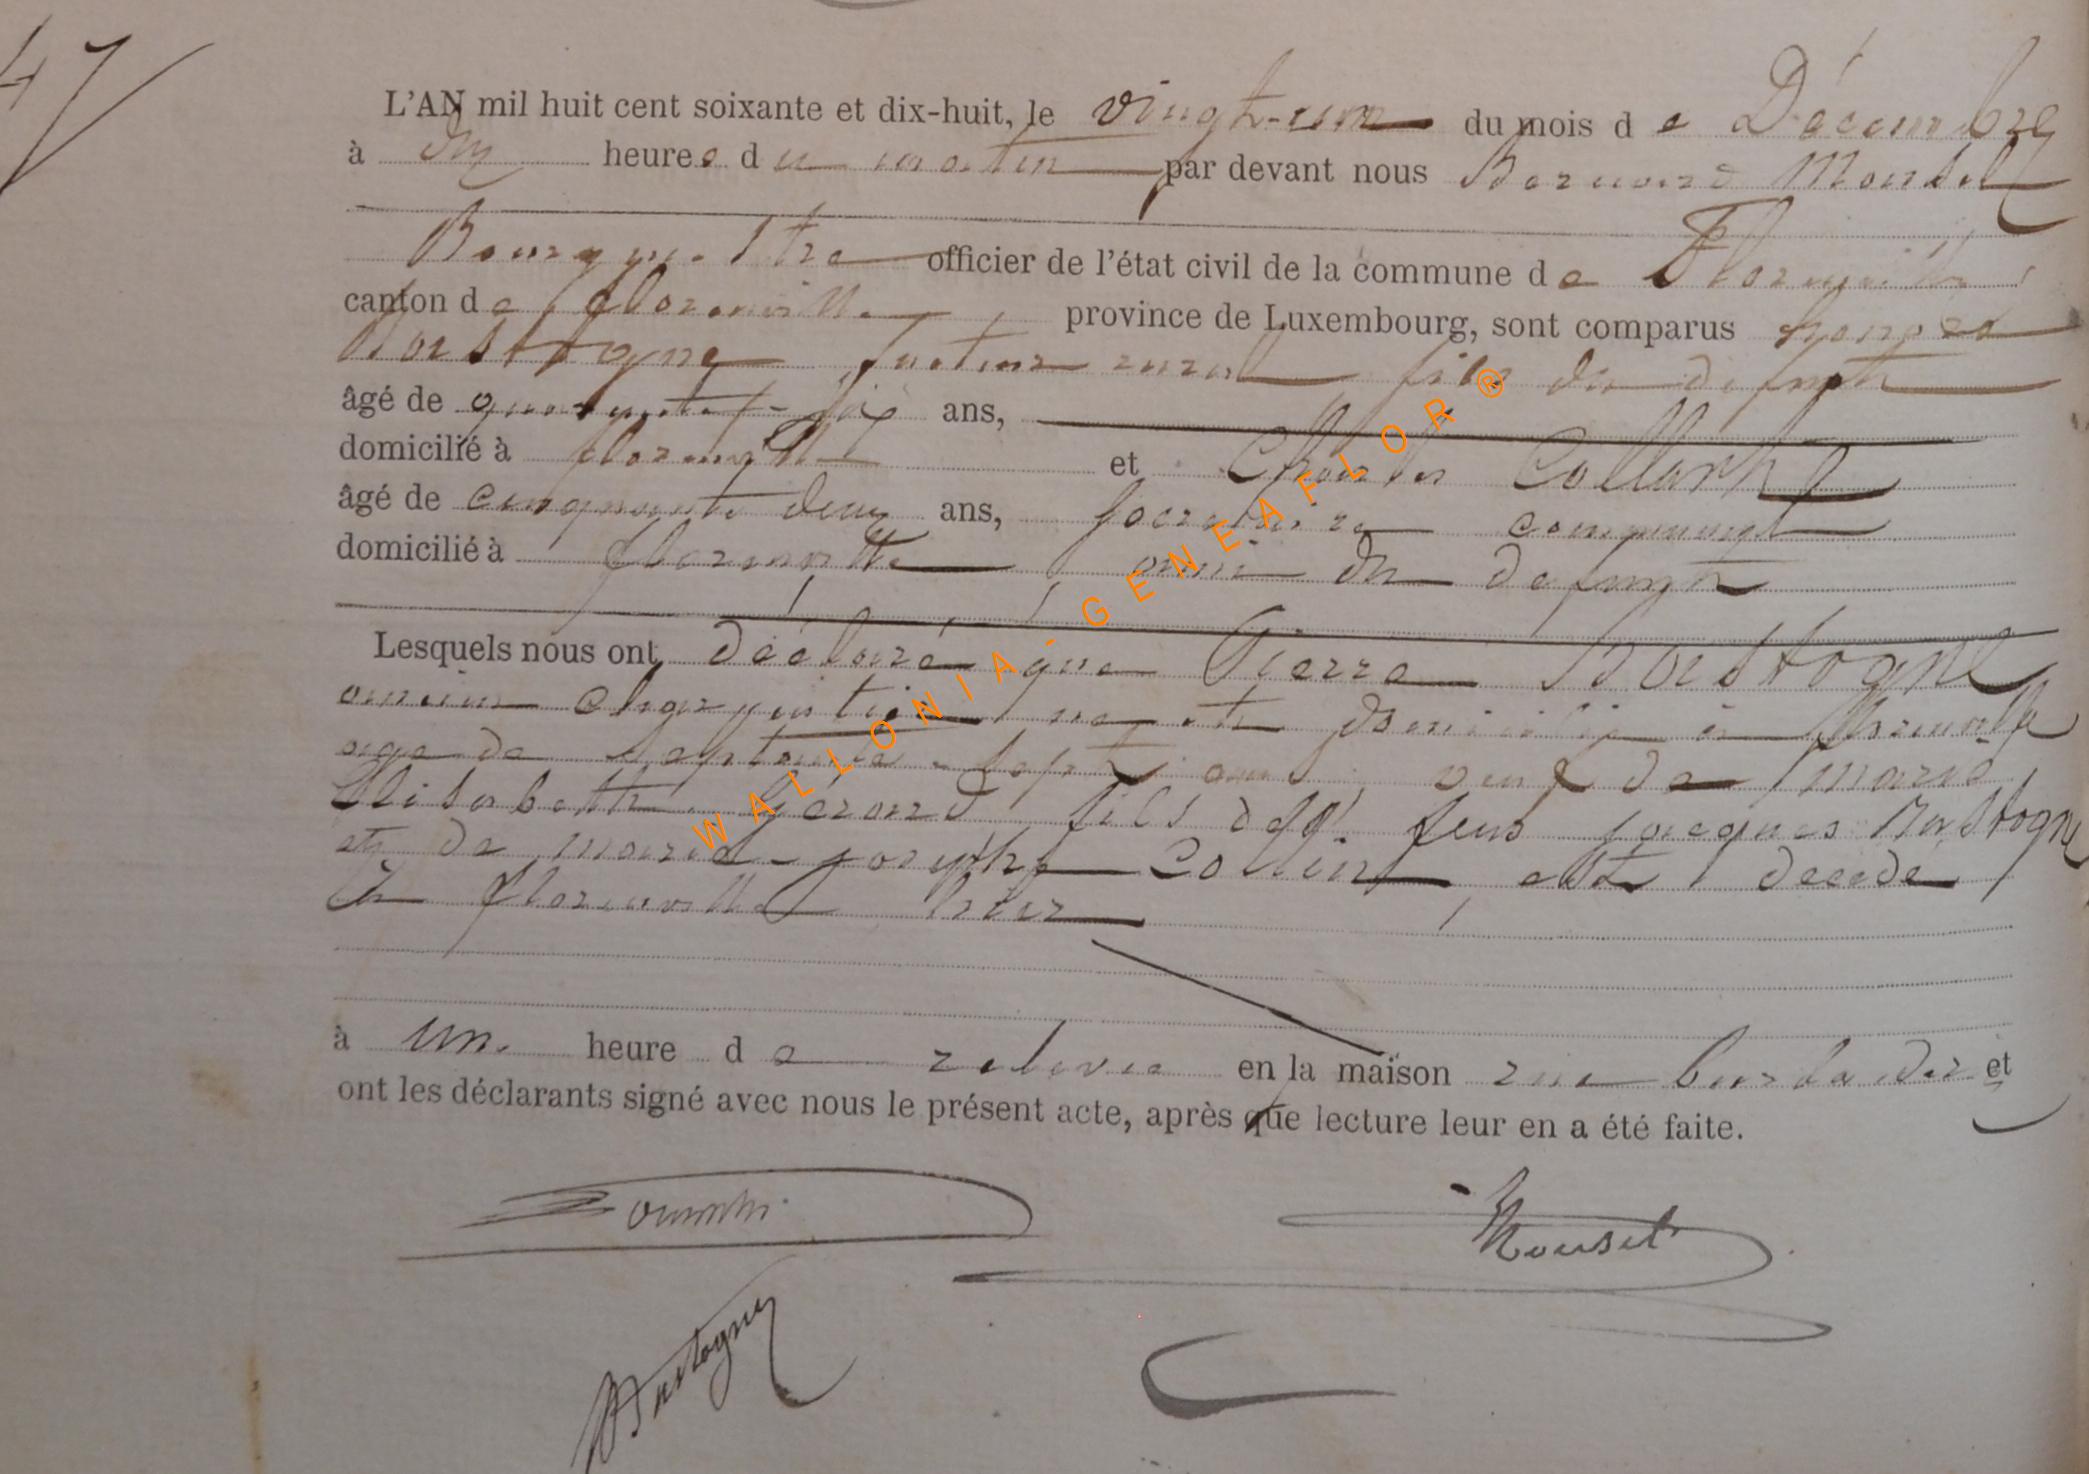 47
L'AN mil huit cent soixante et dix-huit, le vingt-un du mois de Décembre
à dix heures du matin par devant nous Bernard Mousel
Bourgmestre officier de l'état civil de la commune de Florenville
canton de florenville province de Luxembourg, sont comparus honoré
Bastogne facteur rural fils du defunt
âgé de quarante-six ans,
domicilié à florenville et Charles Collard
âgé de cinquante deux ans, secretaire communal
domicilié à florenville ami du defunt
Lesquels nous ont déclaré que Pierre Bastogne
ancien charpentier né et domicilié à florenville
age de septante-sept ans veuf de marie
Elisabeth Gérard fils des feus jacques Bastogne
et de marie-josephe Collin, est decede
à florenville hier
à une heure de relevée en la maison rue et
ont les déclarants signé avec nous le présent acte, après que lecture leur en a été faite.
Mousel
Bastogne
WALLONIA-GENEAFLOR®